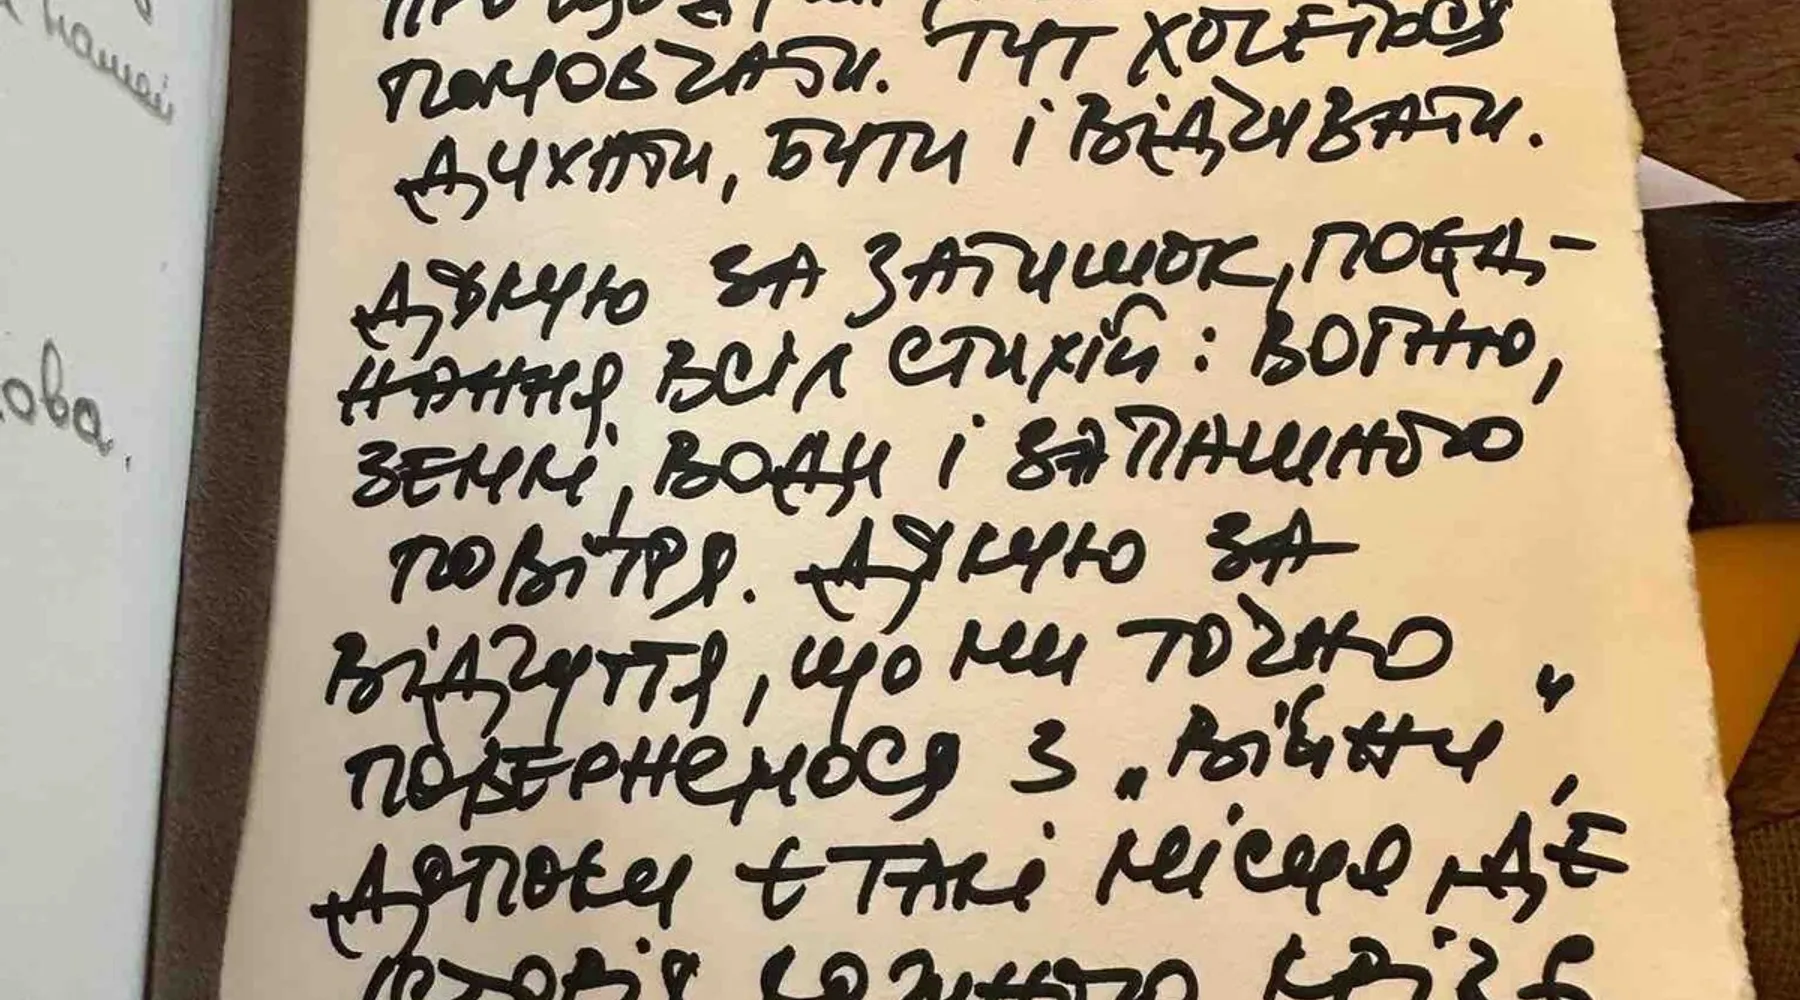 нашої
ова.
ПОМОВЧАТИ. ТУТ ХОЧЕТЬСЯ
ДИХАТИ, БУТИ І ВІДЧУВАТИ.
ДЯКУЮ ЗА ЗАТИШОК, ПОЄД-
НАННЯ ВСІХ СТИХІЙ: ВОГНЮ,
ЗЕМЛІ, ВОДИ І ЗАПАШНОГО
ПОВІТРЯ. ДЯКУЮ ЗА
ВІДЧУТТЯ, ЩО МИ ТОЧНО
ПОВЕРНЕМОСЯ З „ВІЙНИ",
ДОПОКИ Є ТАКІ МІСЦЯ, ДЕ
КОЖНОГО